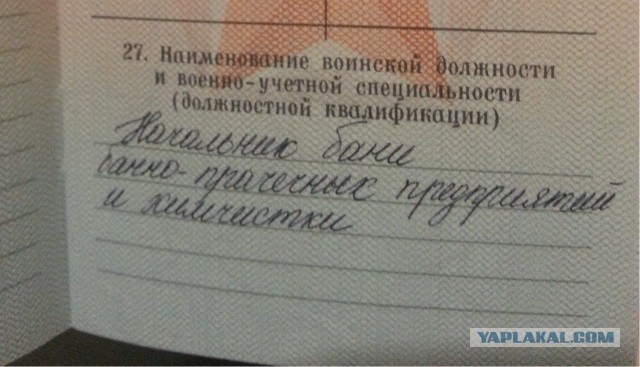 27. Наименование воинской должности
и военно-учетной специальности
(должностной квалификации)
Начальник бани
банно-прачечных предприятий
и химчистки
YAPLAKAL.COM